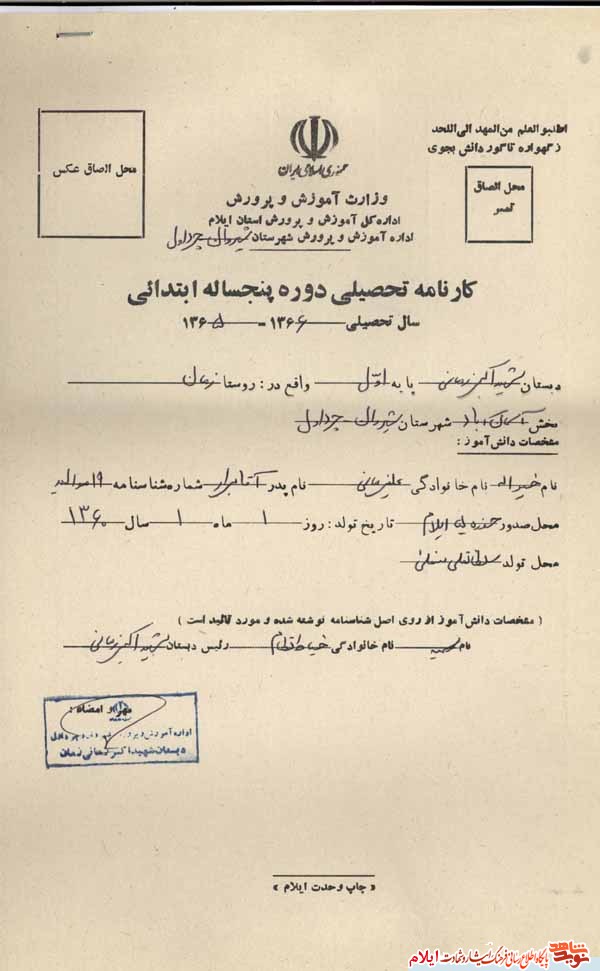 اطلبوالعلم من المهد الی اللحد
زگهواره تا گور دانش بجوی
محل الصاق عکس
محل الصاق
تمبر
جمهوری اسلامی ایران
وزارت آموزش و پرورش
اداره کل آموزش و پرورش استان ایلام
اداره آموزش و پرورش شهرستان شیروان چرداول
کارنامه تحصیلی دوره پنجساله ابتدائی
سال تحصیلی ۱۳۶۶ - ۱۳۶۵
دبستان شهید اکبر زمانی پایه اول واقع در: روستا زمان
بخش آسمان آباد شهرستان شیروان چرداول
مشخصات دانش‌آموز:
نام خیراله نام خانوادگی نام پدر شماره شناسنامه ۱۹
محل صدور ایلام تاریخ تولد: روز ۱ ماه ۱ سال ۱۳۶۰
محل تولد
( مشخصات دانش‌آموز از روی اصل شناسنامه نوشته شده و مورد تائید است )
نام نام خانوادگی رئیس دبستان شهید اکبر زمانی
مهر و امضاء:
اداره آموزش و پرورش
دبستان شهید اکبر زمانی زمان
« چاپ وحدت ایلام »
نوید شاهد
پایگاه اطلاع رسانی فرهنگ ایثار و شهادت ایلام